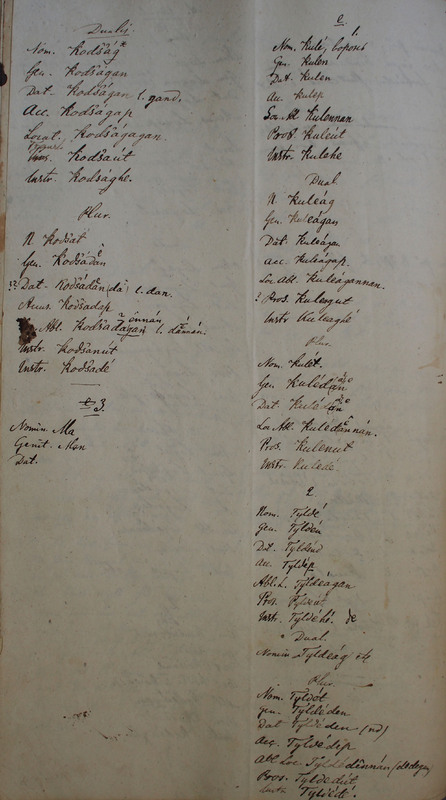 Dualis.
Nom. Kodság*
Gen. Kodságan
Dat. Kodságan l. gand.
Acc. Kodságap
Local. Kodságagan.
Pros. Kodsaút
Instr. Kodsághe.
Plur.
N. Kodsat
Gen. Kodsadan
Dat. Kodsádan (da) l. dan.
Accus. Kodsadap
Abl. Kodsadagan l. dánnán.
Instr. Kodsanút
Instr. Kodsadé
3.
Nomin. Ma
Genit. Man
Dat.
e
1.
Nom. Kulé,
Gen. Kulen
Dat. Kulen
Acc. Kulep
Loc. Abl. Kulennan
Pros. Kuleút
Instr. Kulehe
Dual.
N. Kuleág
Gen. Kuleágan
Dat. Kuleágan
Acc. Kuleágap.
Loc. Abl. Kuleágannan.
? Pros. Kuleagut
Instr. Kuleaghé
Plur.
Nom. Kulét.
Gen. Kulédan
Dat. Kulédan
Loc. Abl. Kulédannán.
Pros. Kulenut
Instr. Kulede.
2.
Nom. Tyldé
Gen. Tyldén
Dat. Tyldénd
Acc. Tyldép
Abl. L. Tyldeágan
Pros. Tyldeút
Instr. Tyldéhé. de
Dual.
Nomin. Tyldeág
Plur.
Nom. Tyldét
Gen. Tyldéden
Dat. Tyldéden (nd)
Acc. Tyldédép
Abl. Loc. Tyldédennán
Pros. Tyldedút
Instr. Tyldedé.